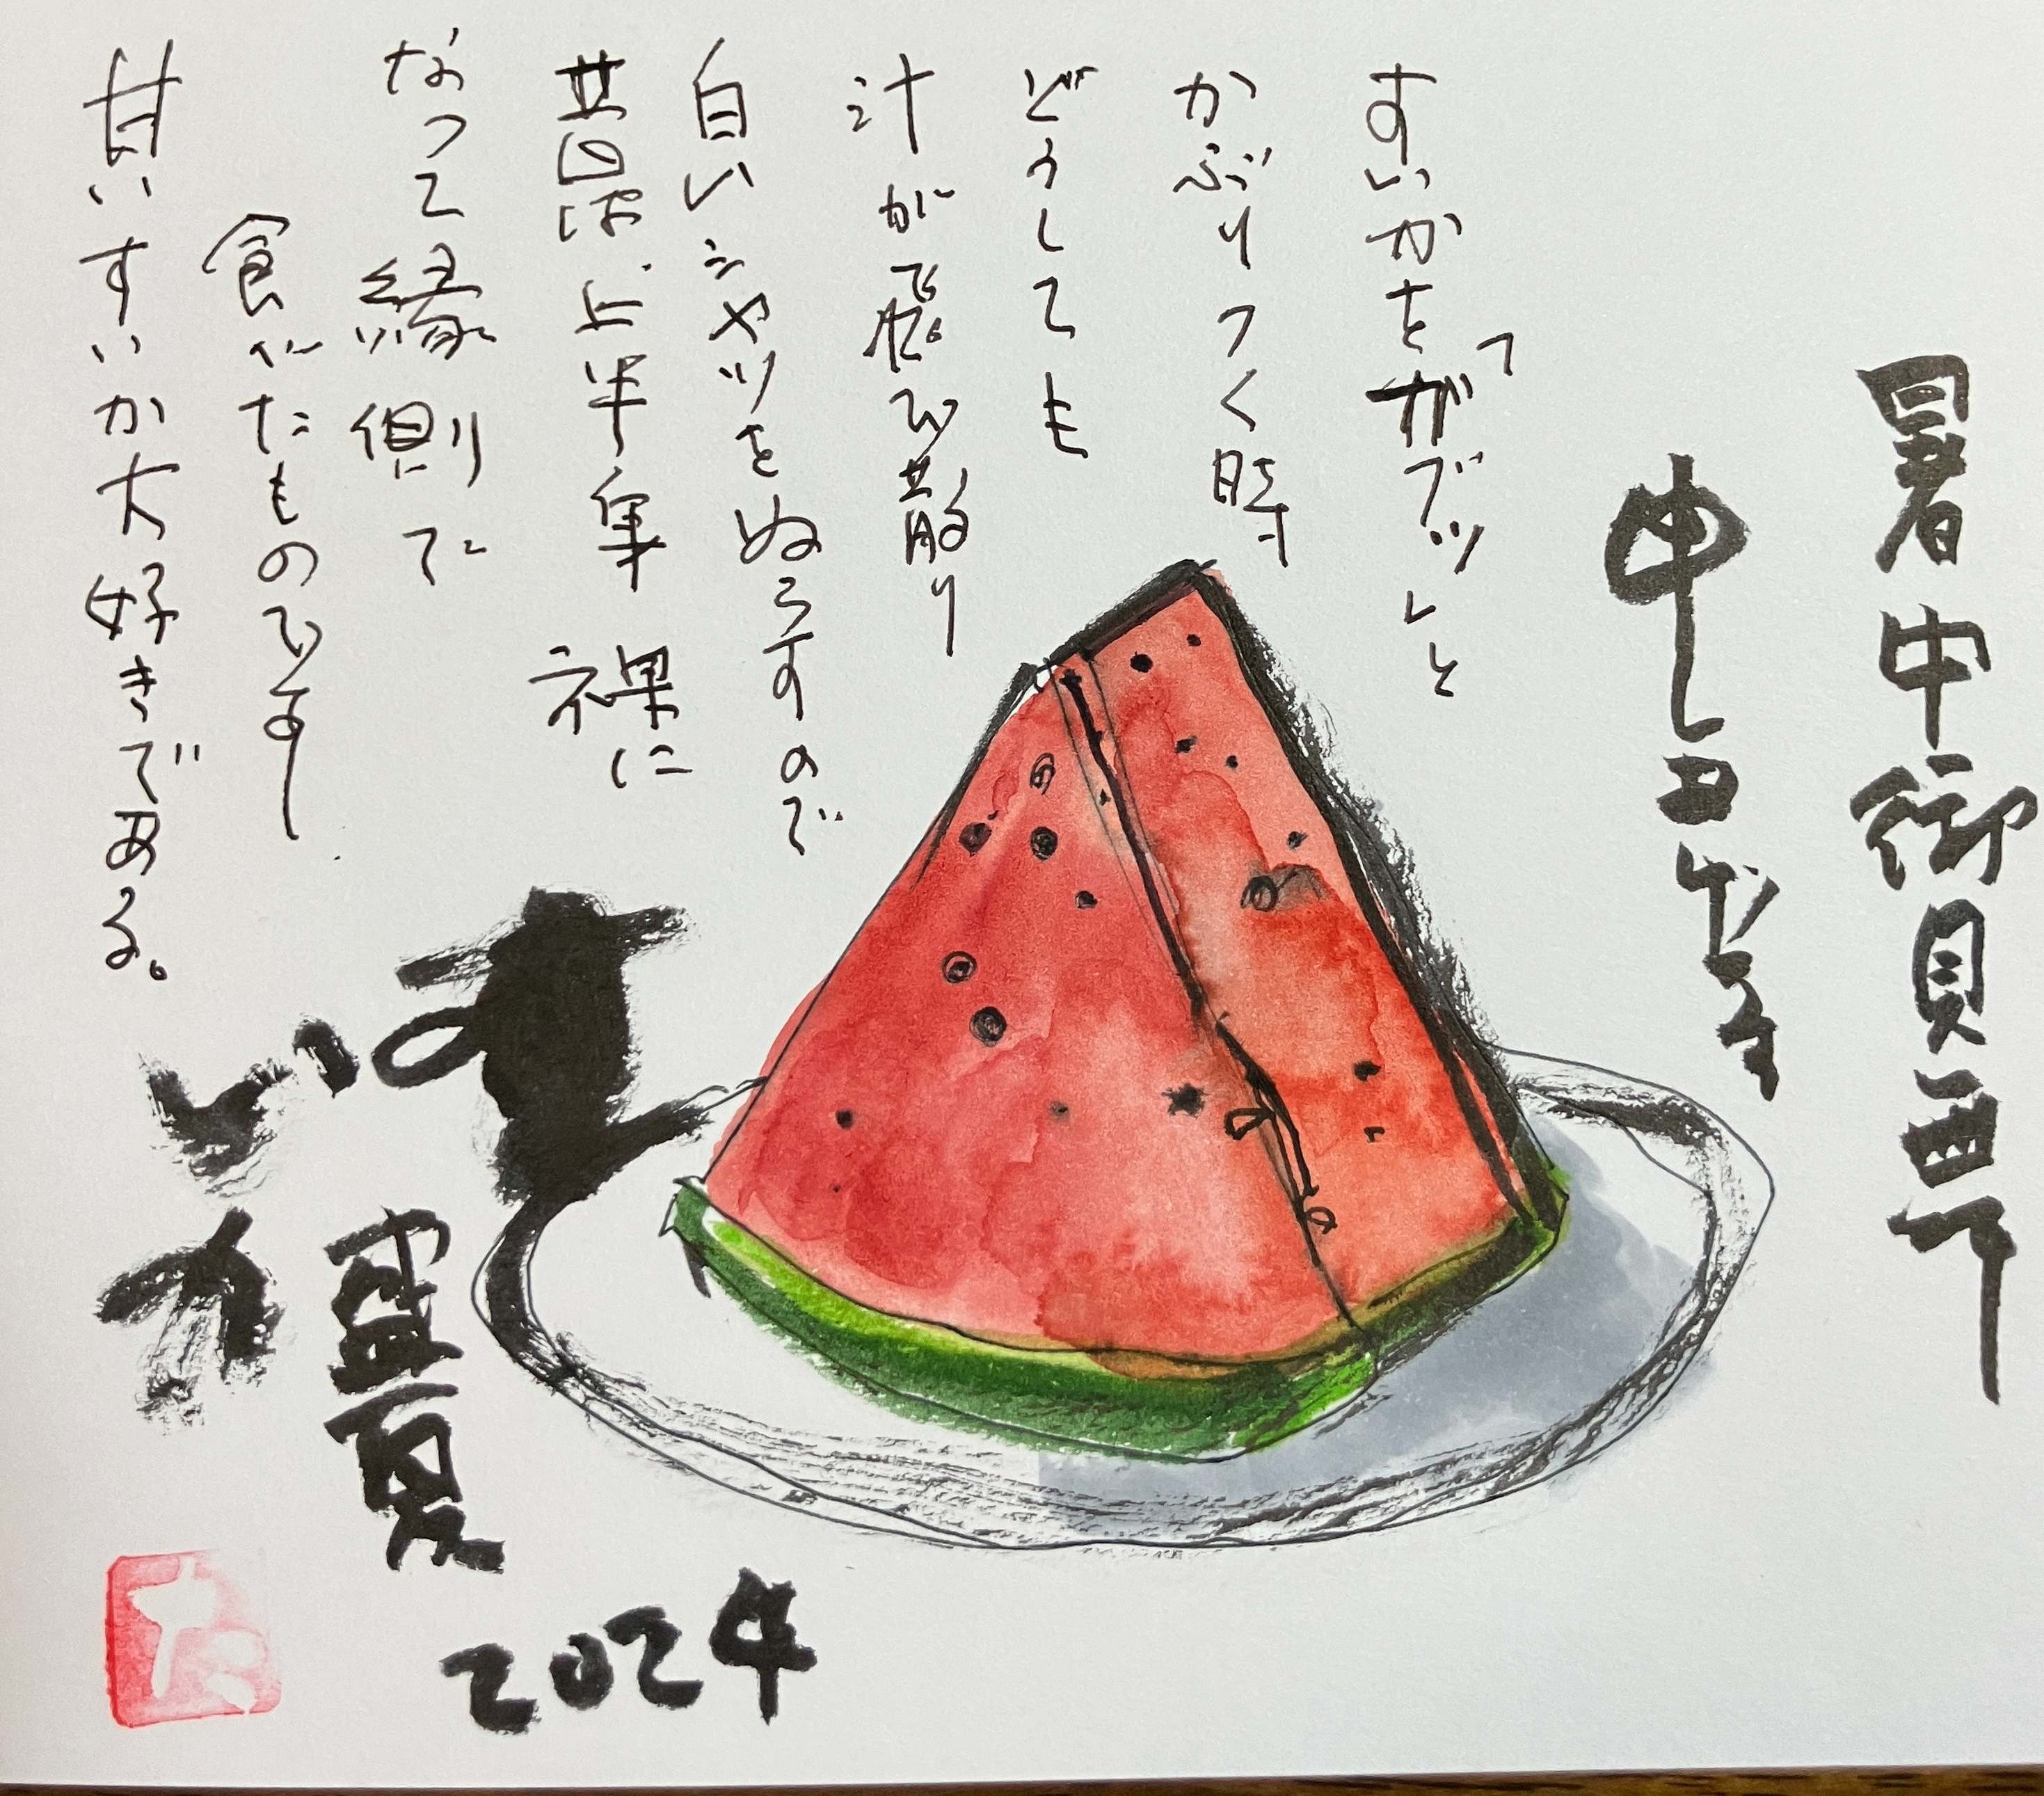 暑中御見舞
申し上げます
すいかを「ガブッ」と
かぶりつく時
どうしても
汁が飛び散り
白いシャツをぬらすので
昔は上半身裸に
なって縁側で
食べたものです
甘いすいか大好きである。
すいか
盛夏
2024
た